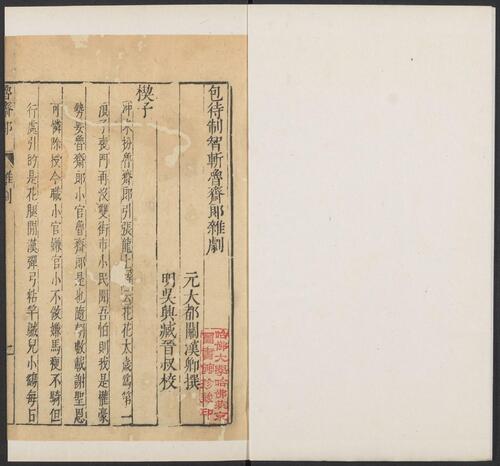 包待制智斬魯齋郎雜劇
元大都關漢卿撰
明吳興臧晉叔校
楔子
冲末扮魯齋郎引張龍上詩云花花太歲爲第一
浪子喪門再沒雙街市小民聞吾怕則我是權豪
勢要魯齋郎小官魯齋郎是也隨朝數載謝聖恩
可憐除授今職小官嫌官小不做嫌馬瘦不騎但
行處引的是花腿閒漢彈弓粘竿賊兒小鷂每日
魯齋郎
雜劇
一
哈佛大學哈佛燕京
圖書館珍藏印